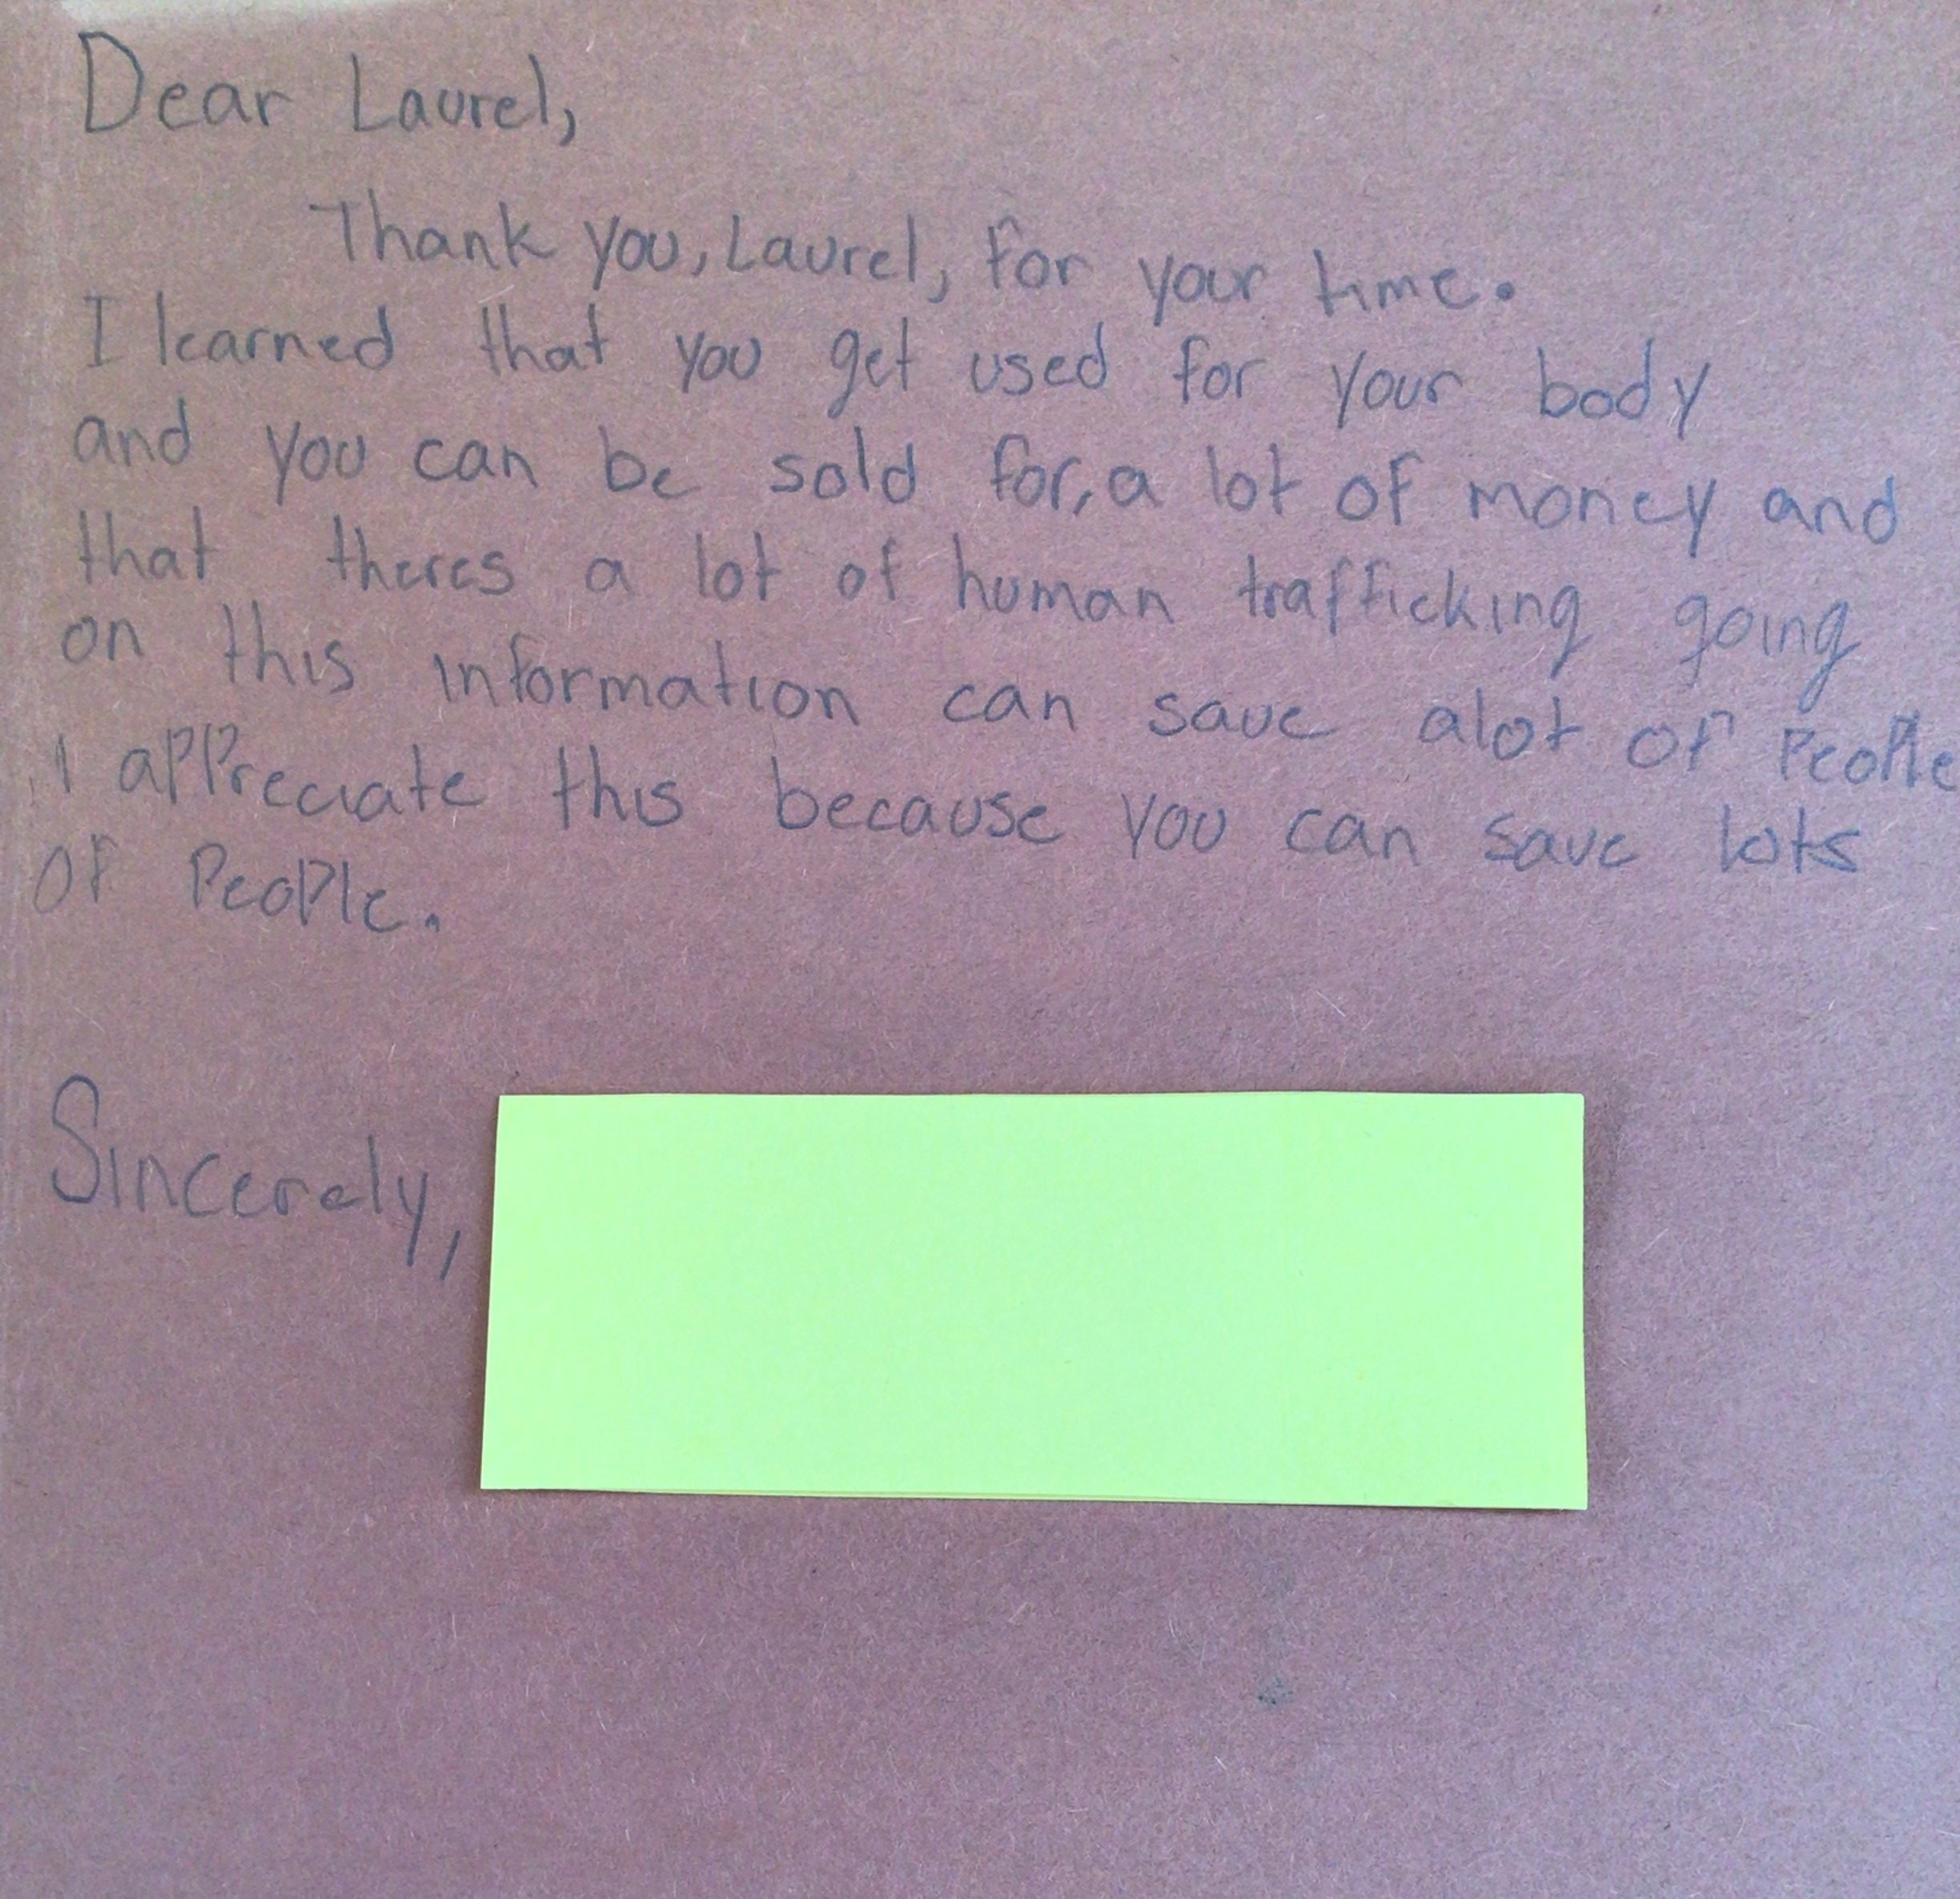 Dear Laurel,
Thank you, Laurel, for your time.
I learned that you get used for your body
and you can be sold for, a lot of money and
that theres a lot of human trafficking going
on this information can save alot of people
I appreciate this because you can save lots
of people.
Sincerely,